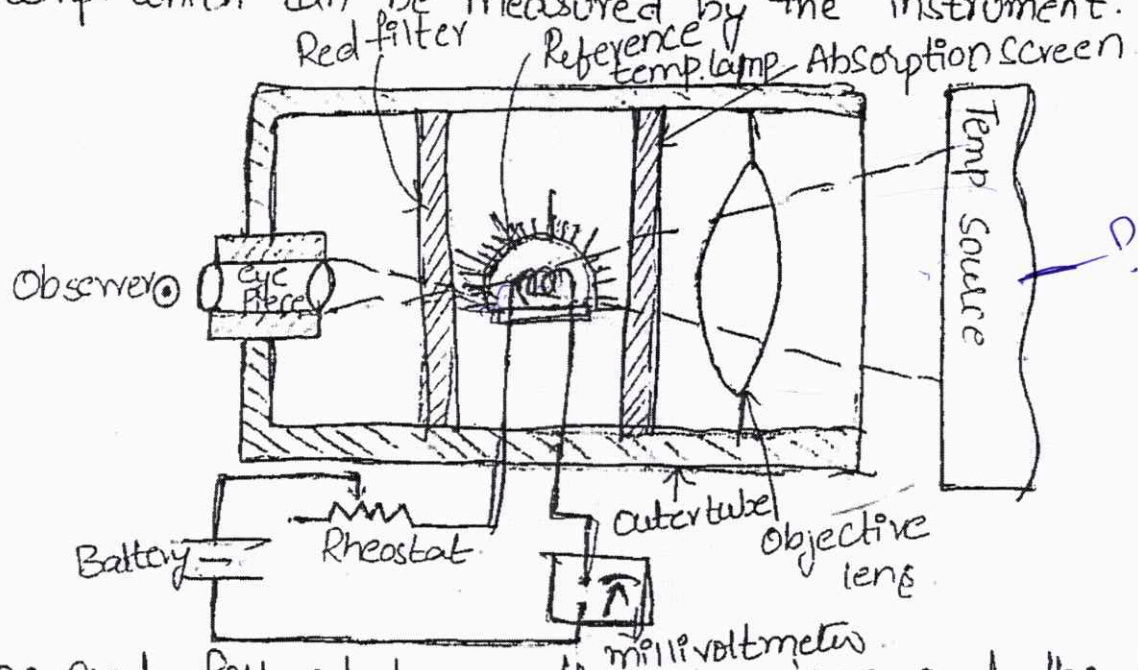 temp which can be measured by the instrument.
Red filter
Reference
temp. lamp
Absorption screen
Temp Source
Observer
eye
Piece
Battery
Rheostat
outer tube
Objective
lens
millivoltmeter